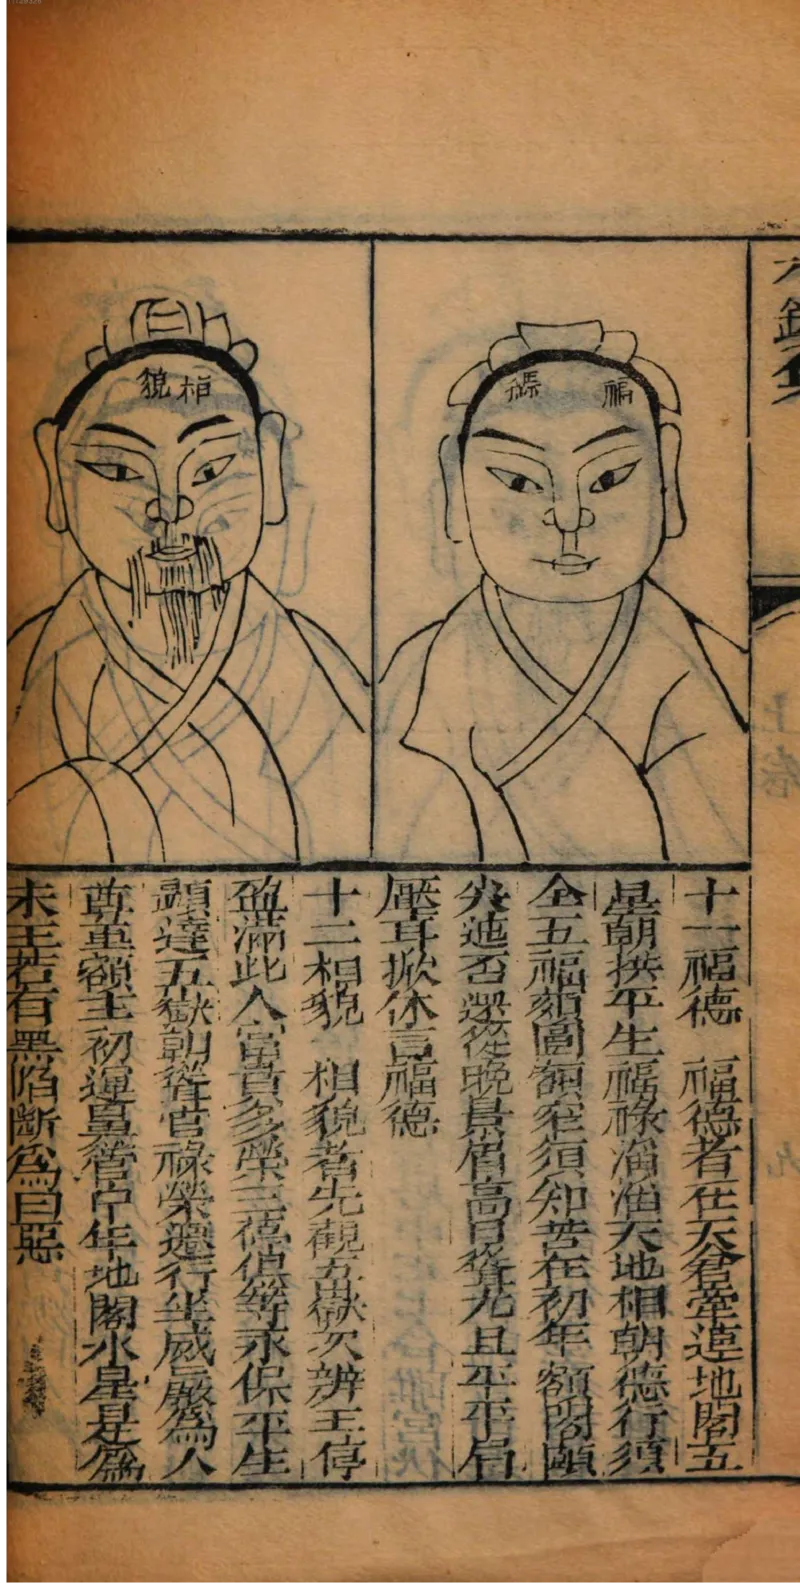 福德
相貌
十一福德 福德者在天倉牽連地閣五
星朝拱平生福祿滔滔天地相朝德行須
全五福頦圓額窄須知苦在初年額闊頤
尖迍否還從晚景眉高目聳尤且平平眉
壓耳掀休言福德
十二相貌 相貌者先觀五嶽次辨三停
盈滿此人富貴多榮三停俱等永保平生
顯達五嶽朝聳官祿榮遷行坐威嚴為人
尊重額主初運鼻管中年地閣水星是為
末主若有黑陷斷為凶惡